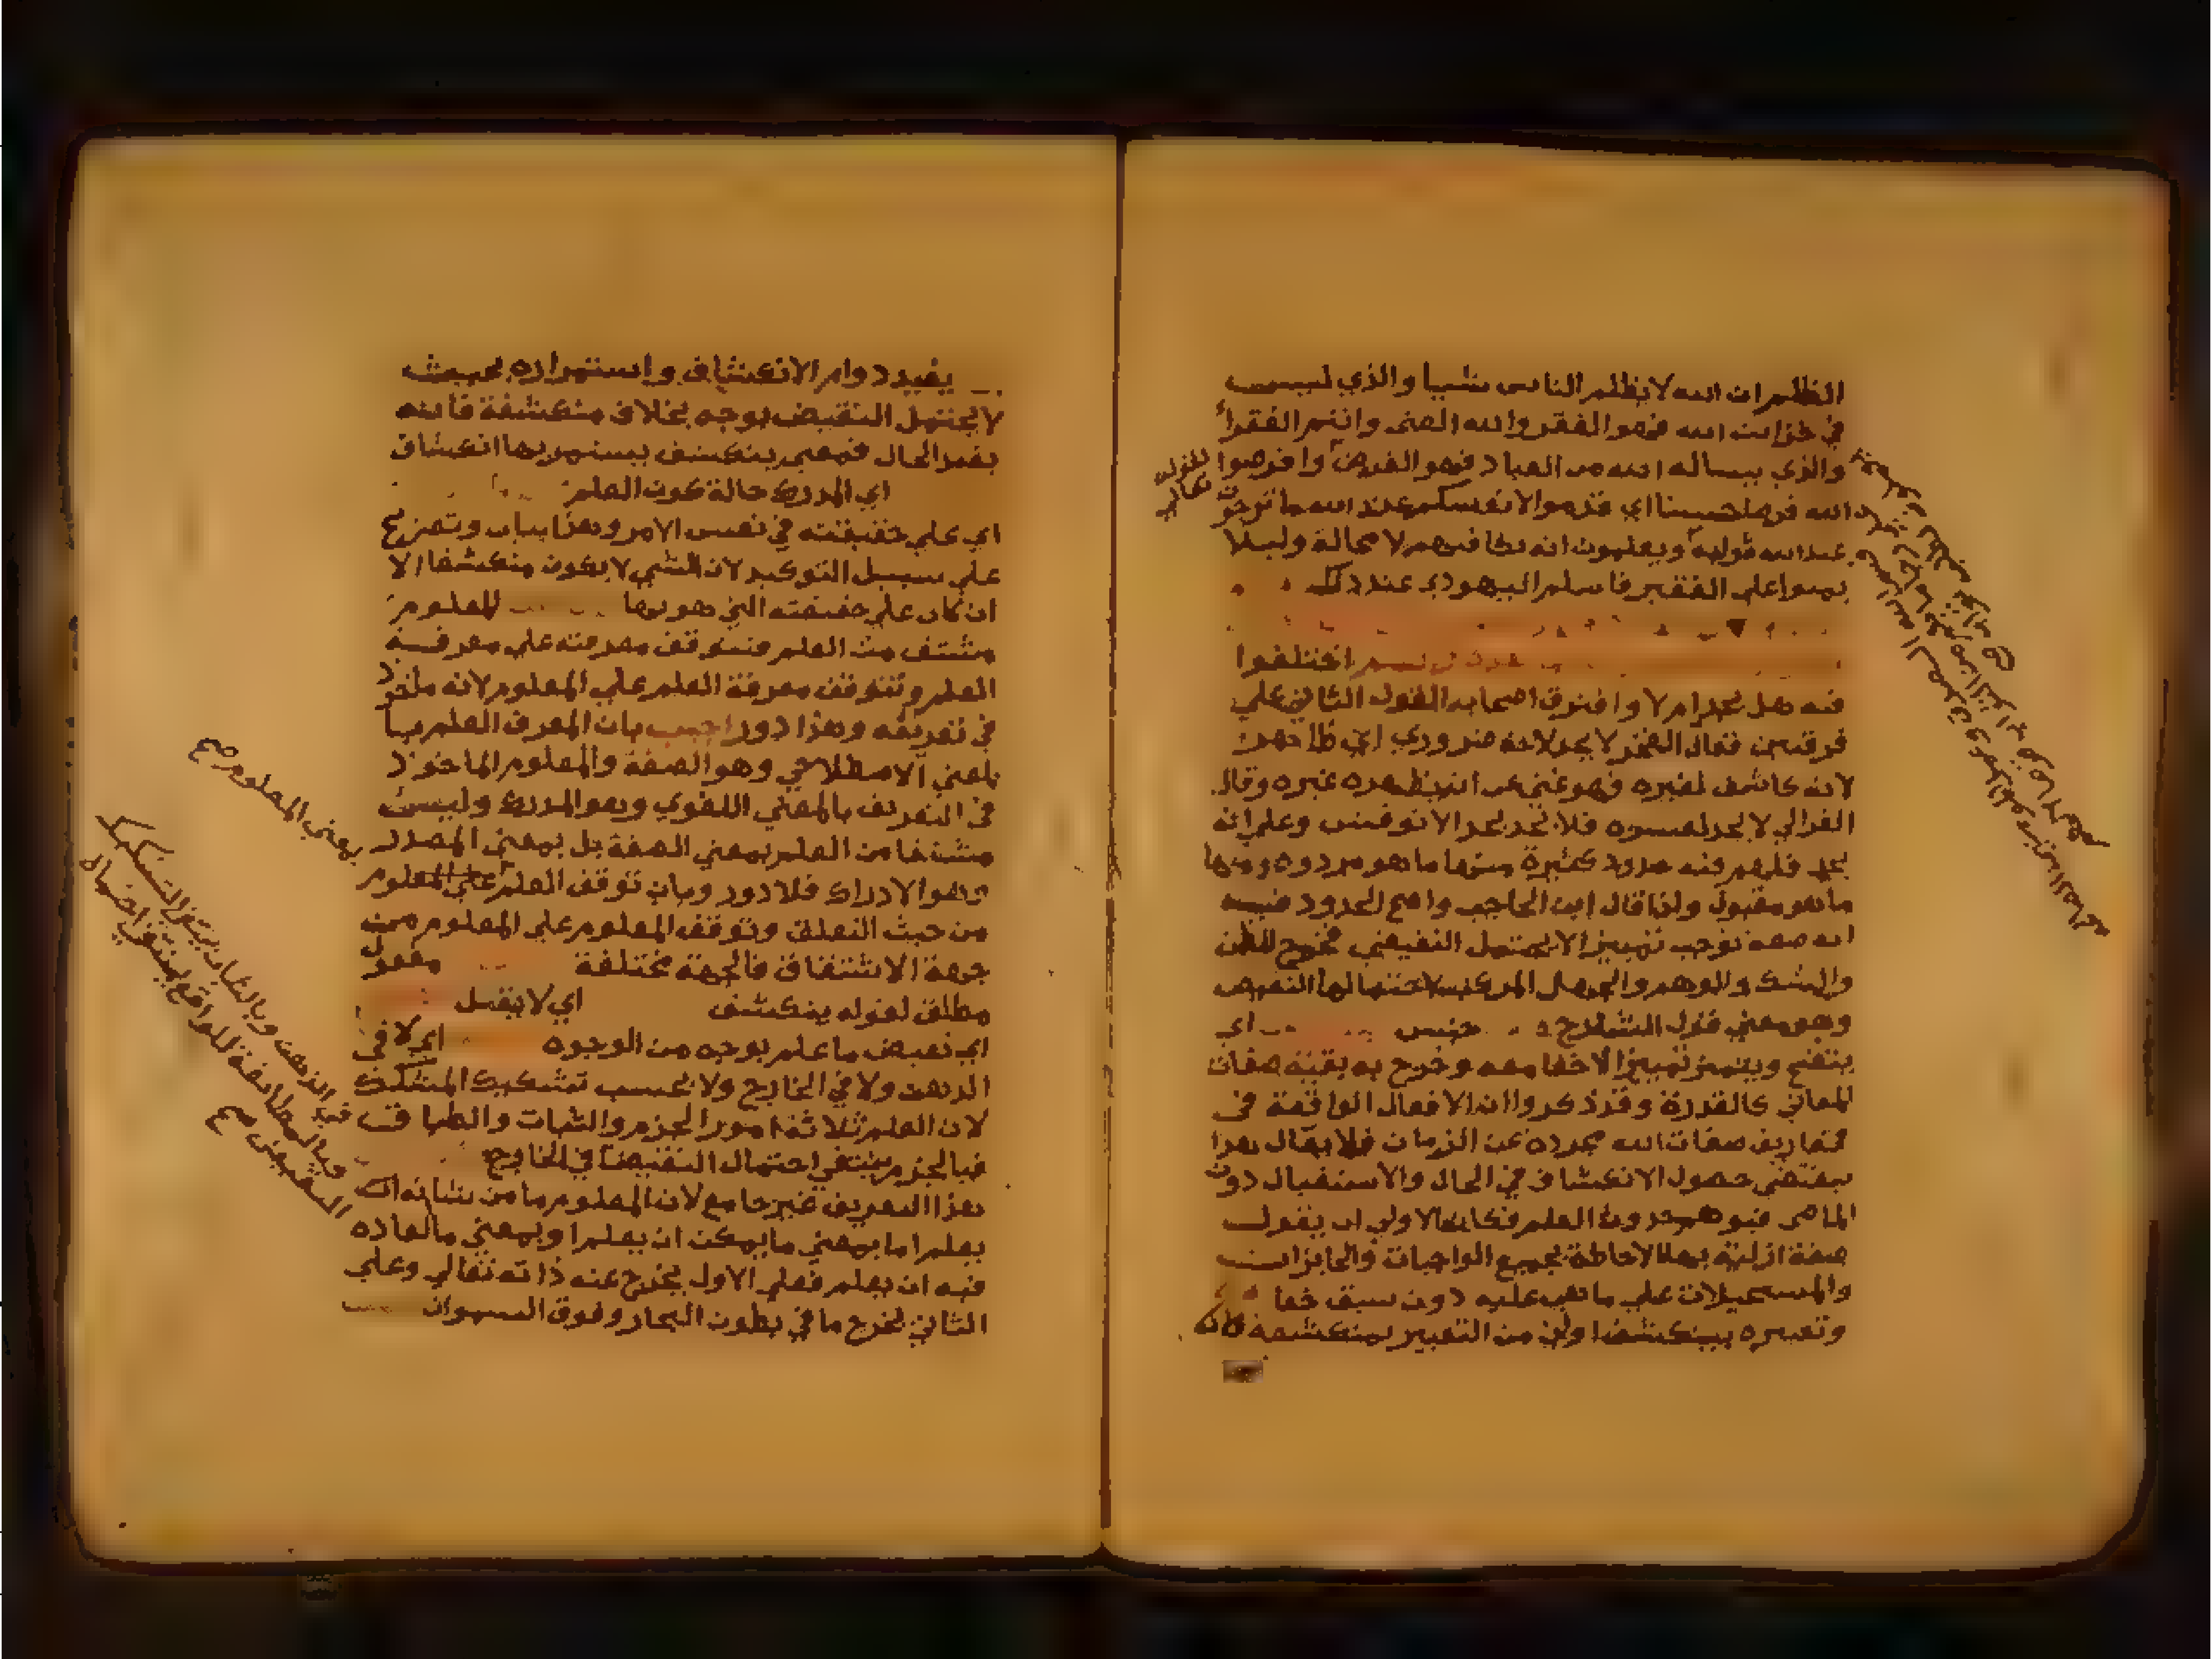 الظلم ان الله لا يظلم الناس شيا والذي ليس
في خزاين الله فهو الفقر والله الغني وانتم الفقرا
والذي يساله الله من العباد فهو القرض واقرضوا
الله قرضا حسنا اي قدموا لانفسكم عند الله ما ترجوا
عند الله ويعلمون انه يكافيهم لا محالة وليلا
يمنوا علي الفقير فاسلم اليهودي عند ذلك
اختلفوا
فيه هل يحد ام لا وافترق اصحاب القول الثاني علي
فرقتين فقال الفخر لا يحد لانه ضروري اي ظاهر
لانه كاشف لغيره فهو غني عن ان يظهره غيره وقال
الغزالي لا يحد لعسره فلا يحد الا توقيني وعلي انه
يحد فلهم فيه حدود كثيرة منها ما هو مردود ومنها
ما هو مقبول ولذا قال ابن الحاجب واصح الحدود فيه
انه صفة توجب تمييزا لا يحتمل النقيض مخرج للظن
والشك والوهم والجهل المركب لاحتمالها النقيض
وهو معني قول الشارح جنس اي
يتضح ويتميز تمييزا لا خفا معه وخرج به بقية صفات
المعاني كالقدرة وقد ذكروا ان الافعال الواقعة في
تعاريف صفات الله مجردة عن الزمان فلا يقال هذا
يقتضي حصول الانكشاف في الحال والاستقبال دون
الماضي فيوهم حدوث العلم فكان الاولي ان يقول
صفة ازلية بها الاحاطة بجميع الواجبات والجايزات
والمستحيلات علي ما هي عليه دون سبق خفا
وتعبيره بينكشف اولي من التعبير بمنكشفة لان
لقوله تعالي
يفيد دوام الانكشاف واستمراره بحيث
لا يحتمل النقيض بوجه بخلاف منكشفة فانه
يفيد الحال فمعني ينكشف يستمر بها انكشاف
اي المدرك حالة كون العلم
اي علي حقيقته في نفس الامر وهذا بيان
علي سبيل التوكيد لان الشي لا يكون منكشفا الا
ان كان علي حقيقته التي هو بها المعلوم
مشتق من العلم فتتوقف معرفته علي معرفة
العلم وتتوقف معرفة العلم علي المعلوم لانه ماخوذ
في تعريفه وهذا دور اجيب بان المعرف العلم
بالمعني الاصطلاحي وهو الصفة والمعلوم الماخوذ
في التعريف بالمعني اللغوي وهو المدرك وليس
مشتقا من العلم بمعني الصفة بل بمعني المصدر
وهو الادراك فلا دور وبان توقف العلم علي المعلوم
من حيث التعلق وتوقف المعلوم علي المعلوم من
جهة الاشتقاق فالجهة مختلفة مفعول
مطلق لقوله ينكشف اي لا يقبل
اي نقيض ما علم بوجه من الوجوه اي لا في
الذهن ولا في الخارج ولا بحسب تشكيك المشكك
لان العلم ثلاثة امور الجزم والثبات والطباق
فبالجزم ينتفي احتمال النقيض في الخارج
هذا التعريف غير جامع لان المعلوم ما من شانه ان
يعلم اما بمعني ما يمكن ان يعلم او بمعني ما العادة
فيه ان يعلم فعلي الاول يخرج عنه ذاته تعالي وعلي
الثاني يخرج ما في بطون البحار وفوق السموات
بمعني المعلوم صح
في الذهن وبالثبات ينتفي التشكك
وبالمطابقة للواقع ينتفي احتمال
النقيض صح